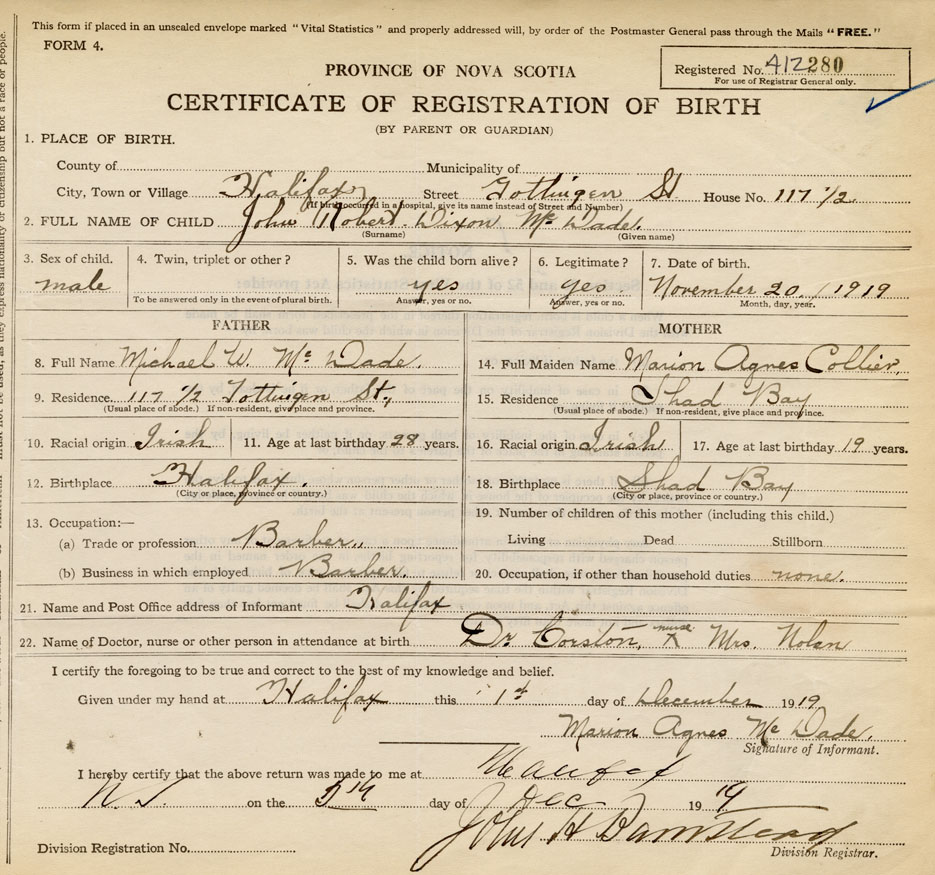 This form if placed in an unsealed envelope marked "Vital Statistics" and properly addressed will, by order of the Postmaster General pass through the Mails "FREE."
FORM 4.
Registered No. 412280
For use of Registrar General only.
PROVINCE OF NOVA SCOTIA
CERTIFICATE OF REGISTRATION OF BIRTH
(BY PARENT OR GUARDIAN)
1. PLACE OF BIRTH.
County of Municipality of
City, Town or Village Halifax Street Gottingen St House No. 117 1/2
(If birth occurred in a hospital, give its name instead of Street and Number)
2. FULL NAME OF CHILD John Robert Dixon Mc Dade.
(Surname) (Given name)
3. Sex of child. 4. Twin, triplet or other? 5. Was the child born alive? 6. Legitimate? 7. Date of birth.
male yes yes November 20, 1919
To be answered only in the event of plural birth. Answer, yes or no. Answer, yes or no. Month, day, year.
FATHER MOTHER
8. Full Name Michael W. Mc Dade. 14. Full Maiden Name Marion Agnes Collier.
9. Residence. 117 1/2 Gottingen St., 15. Residence Shad Bay
(Usual place of abode.) If non-resident, give place and province. (Usual place of abode.) If non-resident, give place and province.
10. Racial origin Irish 11. Age at last birthday 28 years. 16. Racial origin Irish 17. Age at last birthday 19 years.
12. Birthplace Halifax. 18. Birthplace Shad Bay
(City or place, province or country.) (City or place, province or country.)
13. Occupation:— 19. Number of children of this mother (including this child.)
(a) Trade or profession Barber. Living Dead Stillborn
(b) Business in which employed Barber. 20. Occupation, if other than household duties none.
21. Name and Post Office address of Informant Halifax
22. Name of Doctor, nurse or other person in attendance at birth Dr. Corston, nurse Mrs. Nolan
I certify the foregoing to be true and correct to the best of my knowledge and belief.
Given under my hand at Halifax this 1st day of December 1919.
Marion Agnes Mc Dade.
Signature of Informant.
I hereby certify that the above return was made to me at Halifax
N.S. on the 5th day of Dec 1919
John H Barnstead
Division Registration No. Division Registrar.